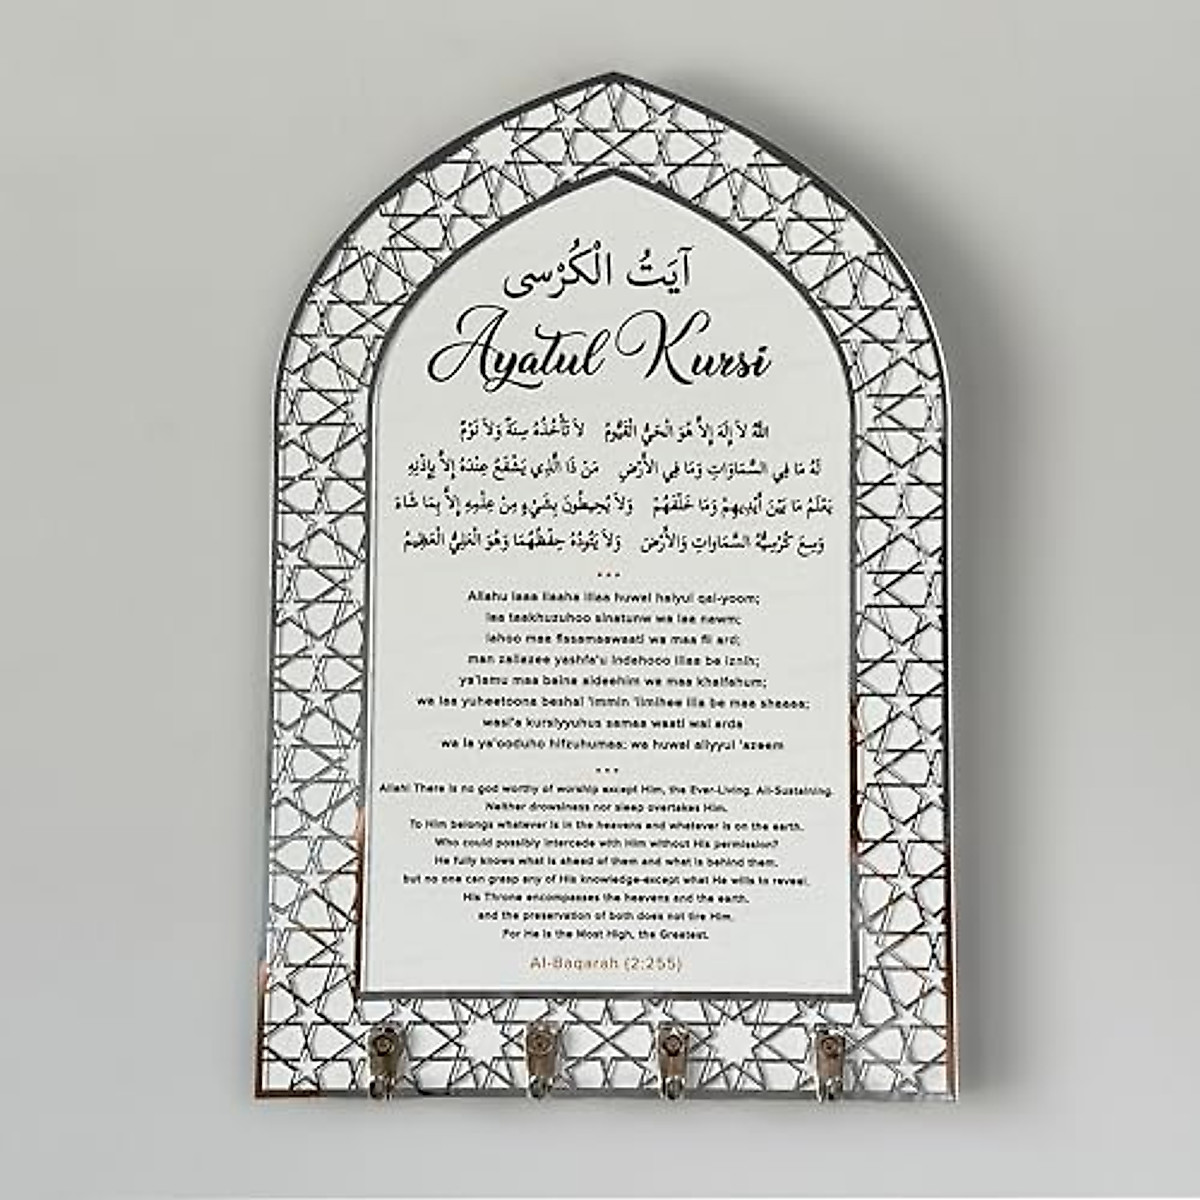 آيَتُ الْكُرْسى
Ayatul Kursi
اللهُ لاَ إِلَهَ إِلاَّ هُوَ الْحَيُّ الْقَيُّومُ لاَ تَأْخُذُهُ سِنَةٌ وَلاَ نَوْمٌ
لَهُ مَا فِي السَّمَاوَاتِ وَمَا فِي الأَرْضِ مَن ذَا الَّذِي يَشْفَعُ عِنْدَهُ إِلاَّ بِإِذْنِهِ
يَعْلَمُ مَا بَيْنَ أَيْدِيهِمْ وَمَا خَلْفَهُمْ وَلاَ يُحِيطُونَ بِشَيْءٍ مِنْ عِلْمِهِ إِلاَّ بِمَا شَاءَ
وَسِعَ كُرْسِيُّهُ السَّمَاوَاتِ وَالأَرْضَ وَلاَ يَئُودُهُ حِفْظُهُمَا وَهُوَ الْعَلِيُّ الْعَظِيمُ
Allahu laaa ilaaha illaa huwal haiyul qai-yoom;
laa taakhuzuhoo sinatunw wa laa nawm;
lahoo maa fissamaawaati wa maa fil ard;
man zallazee yashfa'u indahooo illaa be iznih;
ya'lamu maa baina aideehim wa maa khalfahum;
wa laa yuheetoona beshai 'immin 'ilmihee illa be maa shaaaa;
wasi'a kursiyyuhus samaa waati wal arda
wa la ya'ooduho hifzuhumaa; wa huwal aliyyul 'azeem
Allah! There is no god worthy of worship except Him, the Ever-Living, All-Sustaining.
Neither drowsiness nor sleep overtakes Him.
To Him belongs whatever is in the heavens and whatever is on the earth.
Who could possibly intercede with Him without His permission?
He fully knows what is ahead of them and what is behind them,
but no one can grasp any of His knowledge-except what He wills to reveal.
His Throne encompasses the heavens and the earth,
and the preservation of both does not tire Him.
For He is the Most High, the Greatest.
Al-Baqarah (2:255)